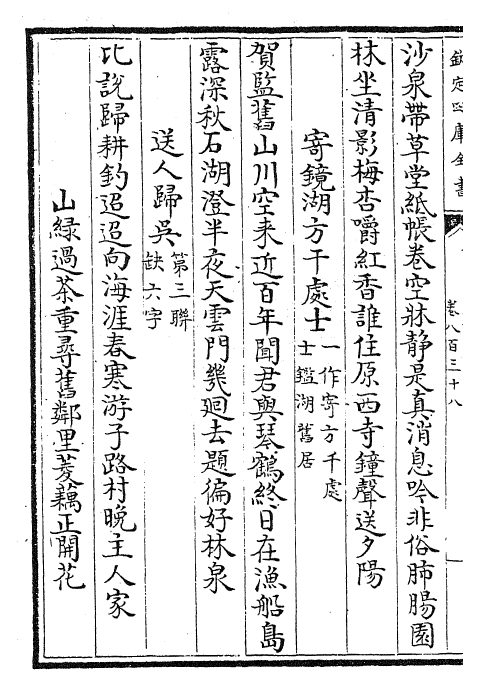 欽定四庫全書
卷八百三十八
沙泉帶草堂紙帳卷空牀静是真消息吟非俗肺腸園
林坐清影梅杏嚼紅香誰住原西寺鐘聲送夕陽
寄鏡湖方干處士一作寄方干處
士鑑湖舊居
賀監舊山川空来近百年聞君與琴鶴終日在漁船島
露深秋石湖澄半夜天雲門幾迴去題徧好林泉
送人歸吳第三聯
缺六字
比說歸耕釣迢迢向海涯春寒游子路村晚主人家
山緑過茶重尋舊鄰里菱藕正開花